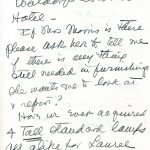 Waldorf Astoria
Hotel —
If Dev Morris is there
please ask her to tell me
if there is any thing
still needed in furnishing
she wants me to look at
& report?
Has us ever acquired
4 Tall Standard lamps
all alike for Laurel